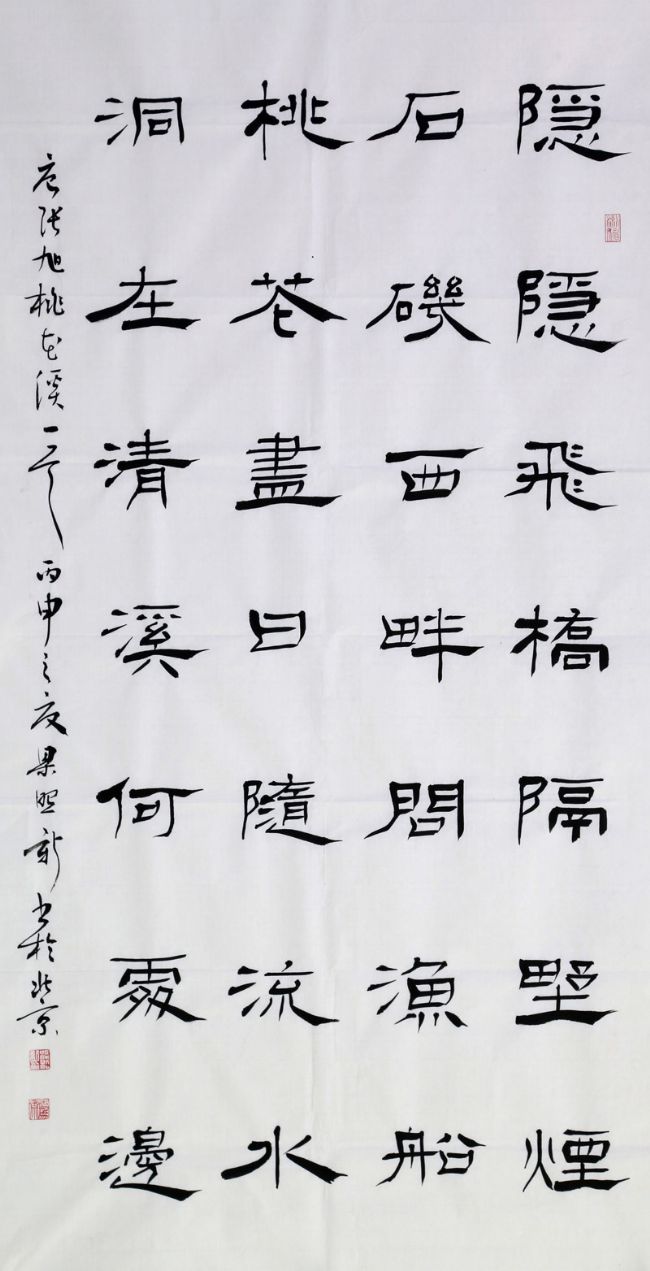 隐隐飛橋隔野煙
石磯西畔問漁船
桃花盡日隨流水
洞在清溪何處邊
唐张旭桃花溪一首 丙申之夏梁照新书於北京